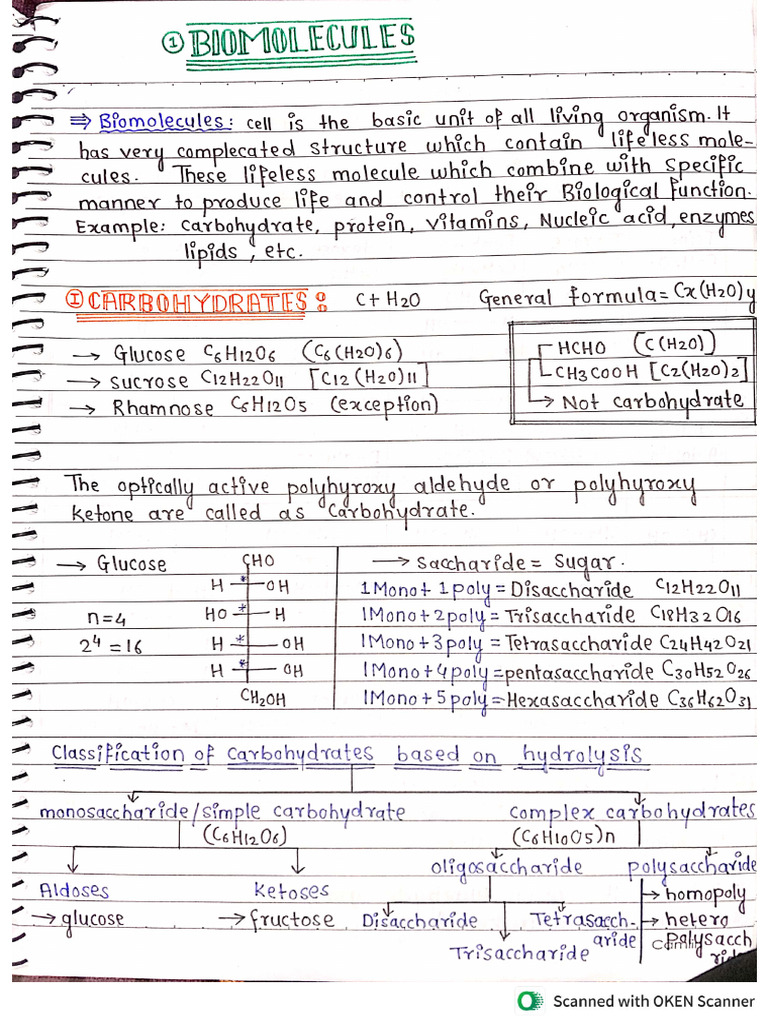 ① BIOMOLECULES
⇒ Biomolecules: cell is the basic unit of all living organism. It
has very complecated structure which contain lifeless mole-
cules. These lifeless molecule which combine with specific
manner to produce life and control their Biological function.
Example: Carbohydrate, protein, vitamins, Nucleic acid, enzymes
lipids, etc.
Ⓘ CARBOHYDRATES: C+H2O General formula=Cx(H2O)y
→ Glucose C6H12O6 (C6(H2O)6)
→ sucrose C12H22O11 [C12(H2O)11]
→ Rhamnose C6H12O5 (exception)
HCHO [C(H2O)]
CH3COOH [C2(H2O)2]
→ Not carbohydrate
The optically active polyhyroxy aldehyde or polyhyroxy
Ketone are called as Carbohydrate.
→ Glucose
n=4
2⁴=16
CHO
H * OH
HO * H
H * OH
H * OH
CH2OH
→ Saccharide = Sugar.
1Mono+1poly=Disaccharide C12H22O11
1Mono+2poly=Trisaccharide C18H32O16
1Mono+3poly=Tetrasaccharide C24H42O21
1Mono+4poly=pentasaccharide C30H52O26
1Mono+5poly=Hexasaccharide C36H62O31
Classification of Carbohydrates based on hydrolysis
monosaccharide/simple carbohydrate complex carbohydrates
(C6H12O6) (C6H10O5)n
oligosaccharide polysaccharide
Aldoses Ketoses → homopoly
→ glucose → fructose Disaccharide Tetrasacch- → hetero
aride polysacch
Trisaccharide
Scanned with OKEN Scanner